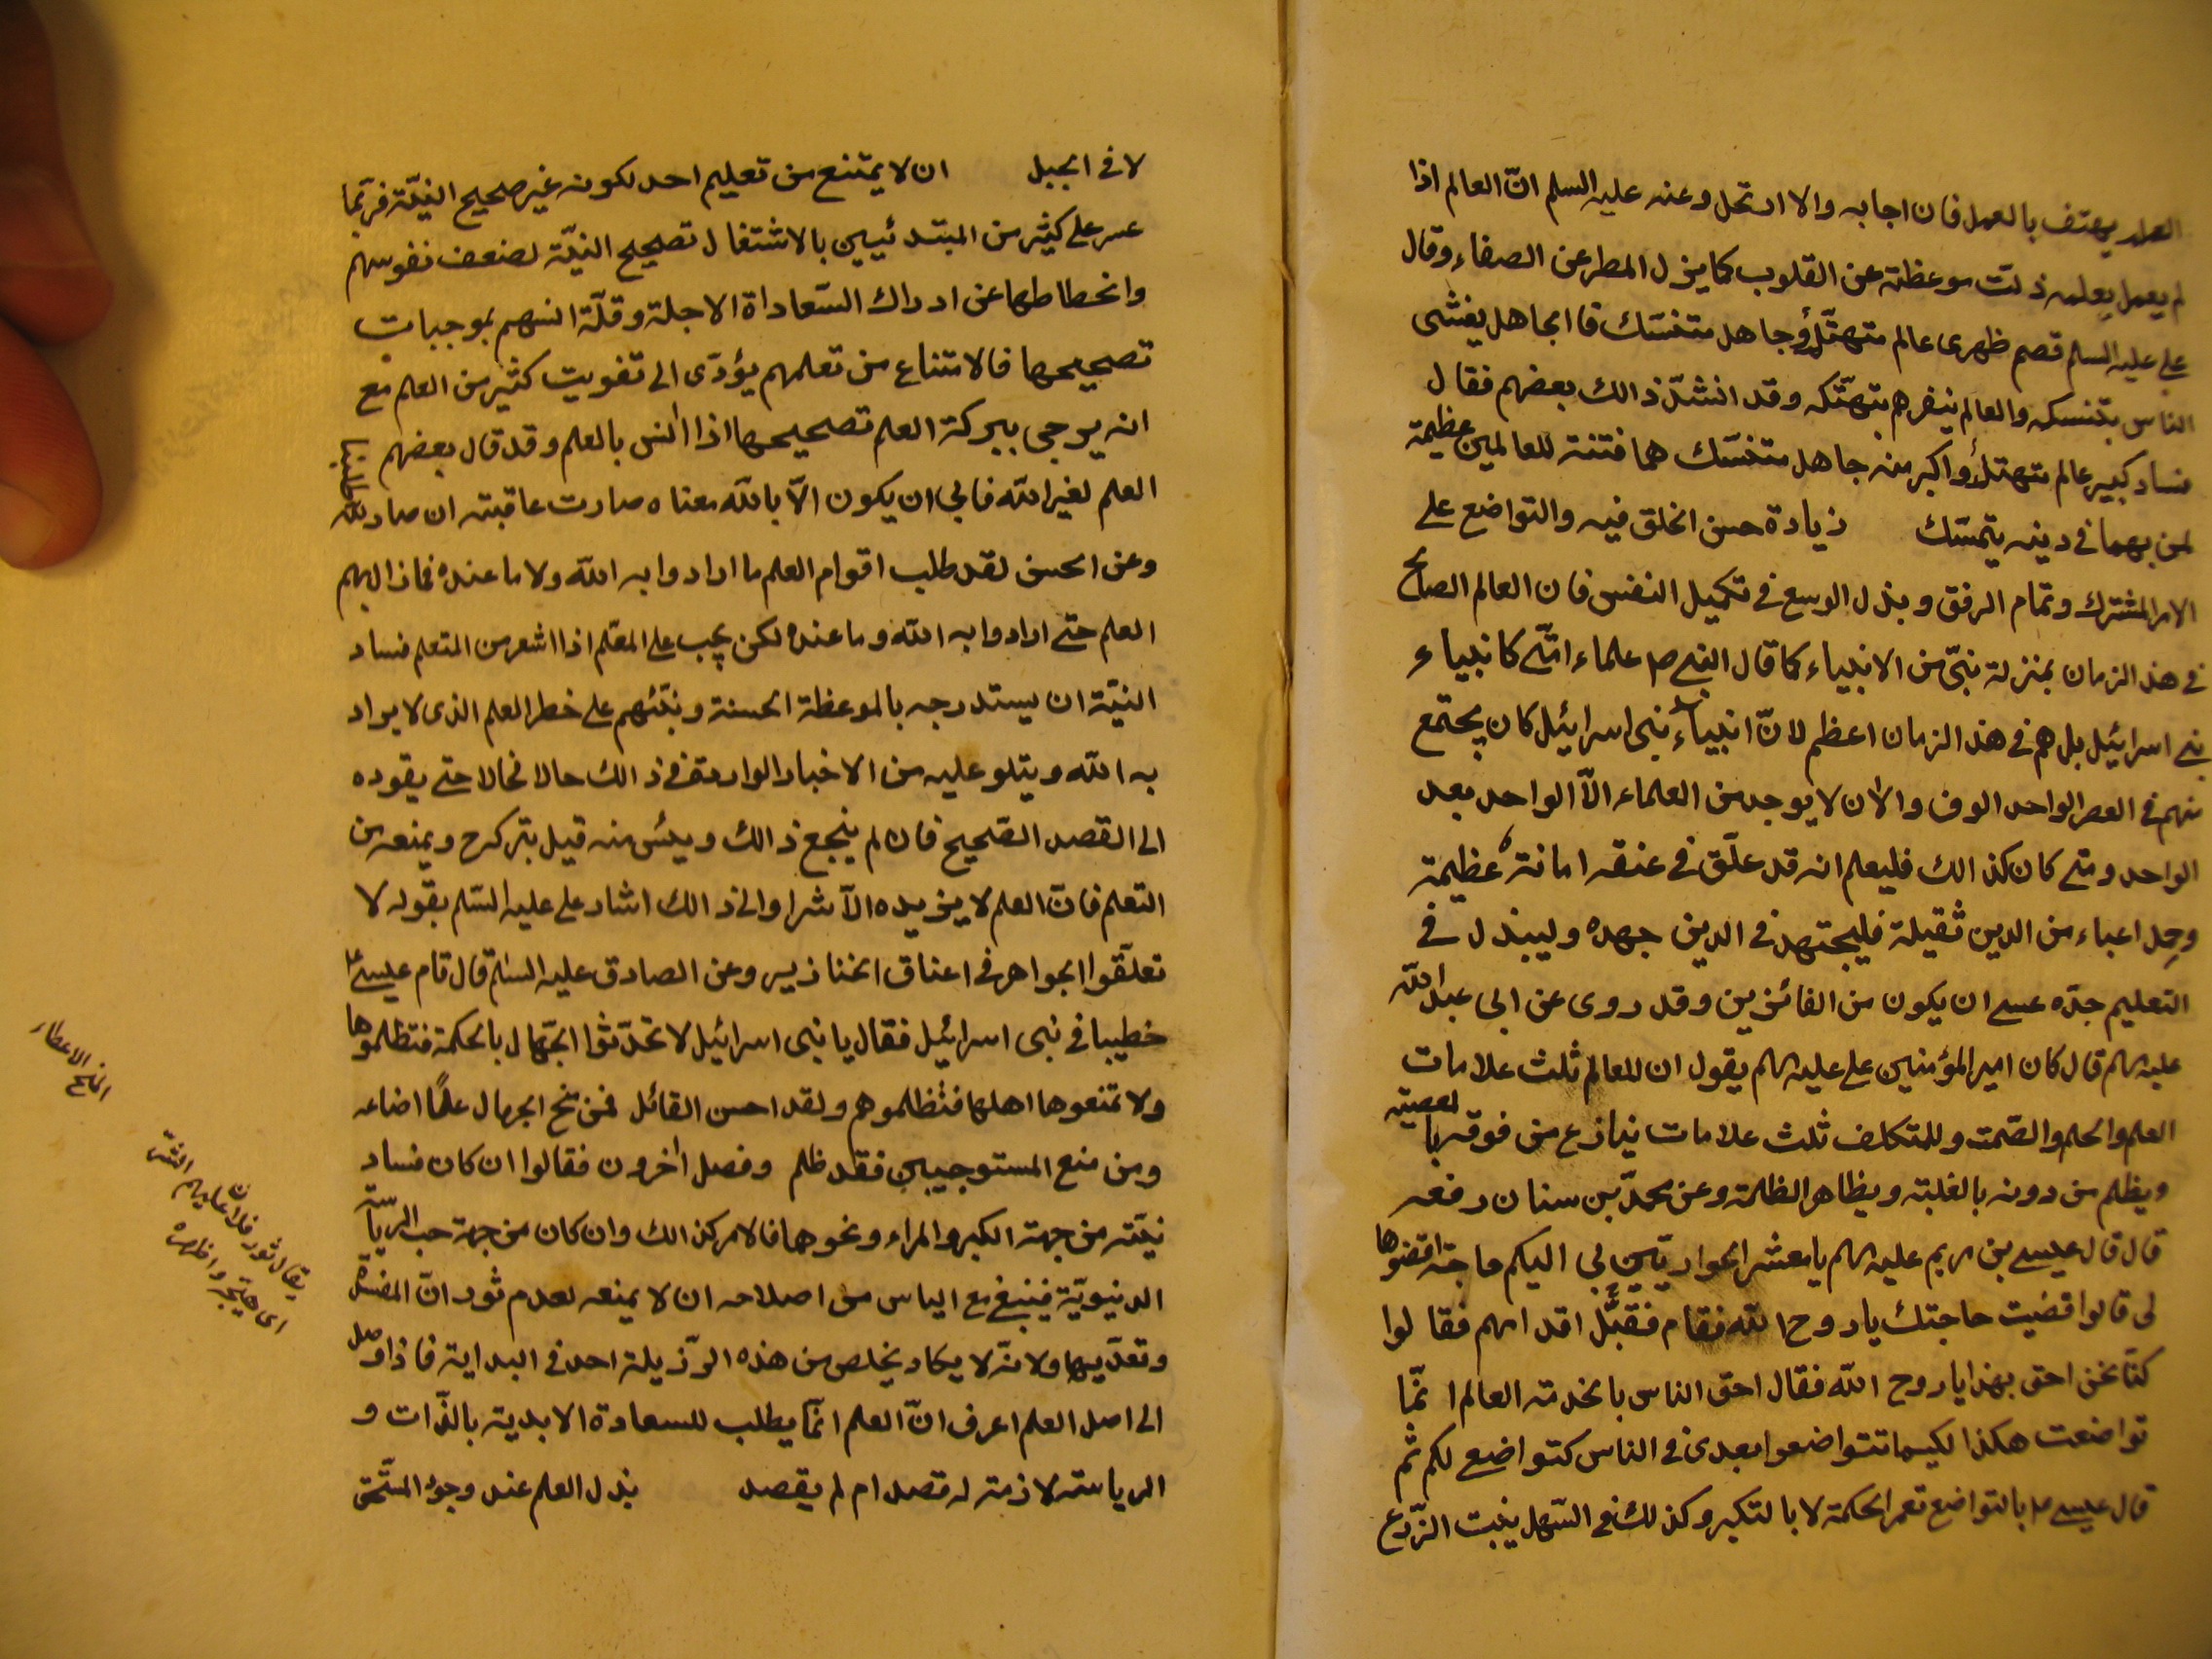 العلم يهتف بالعمل فان اجابه والا ارتحل وعنه عليه السلم انّ العالم اذا
لم يعمل بعلمه زلّت موعظته عن القلوب كما يزل المطر عن الصفاء وقال
علي عليه السلم قصم ظهرى عالم متهتّك وجاهل متنسّك فالجاهل يغشى
الناس بتنسكه والعالم ينفرهم بتهتّكه وقد انشدّ ذالك بعضهم فقال
فساد كبير عالم متهتك واكبر منه جاهل متنسّك هما فتنة للعالمين عظيمة
لمن بهما في دينه يتمسّك زيادة حسن الخلق فيه والتواضع على
الامر المشترك وتمام الرفق وبذل الوسع في تكميل النفس فان العالم الصالح
في هذ الزمان بمنزلة نبيّ من الانبياء كما قال النبي ص علماء امّتي كانبياء
بني اسرائيل بل هم في هذ الزمان اعظم لانّ انبياء بنى اسرائيل كان يجتمع
منهم في العصر الواحد الوف والان لا يوجد من العلماء الاّ الواحد بعد
الواحد ومتى كان كذالك فليعلم انه قد علّق في عنقه امانة عظيمة
وحمل اعباء من الدين ثقيلة فليجتهد في الدين جهده وليبذل في
التعليم جدّه عسى ان يكون من الفائزين وقد روى عن ابى عبد الله
عليه السلم قال كان امير المؤمنين على عليه السلم يقول ان للعالم ثلث علامات
العلم والحلم والصّمت وللمتكلف ثلث علامات ينازع من فوقه بالمعصية
ويظلم من دونه بالغلبة ويظاهر الظلمة وعن محمّد بن سنان رفعه
قال قال عيسى بن مريم عليه السلم يا معشر الحواريّين لى اليكم حاجة اقضوها
لى قالوا قضيت حاجتك يا روح الله فقام فقبّل اقدامهم فقالوا
كنّا نحن احق بهذا يا روح الله فقال احق الناس بالخدمة العالم انّما
تواضعت هكذا لكيما تتواضعوا بعدى في الناس كتواضعى لكم ثم
قال عيسى ع بالتواضع تعمر الحكمة لا بالتكبر وكذلك في السّهل ينبت الزّرع
لا في الجبل ان لا يمتنع من تعليم احد لكونه غير صحيح النيّة فربّما
عسر على كثير من المبتدئيين بالاشتغال تصحيح النيّة لضعف نفوسهم
وانحطاطها عن ادراك السّعاداة الاجلة وقلّة انسهم بموجبات
تصحيحها فالامتناع من تعلمهم يؤدّى الى تفويت كثير من العلم مع
انه يرجى ببركة العلم تصحيحها اذا انس بالعلم وقد قال بعضهم طلبنا
العلم لغير الله فابى ان يكون الاّ بالله معناه صارت عاقبته ان صار لله
وعن الحسن لقد طلب اقوام العلم ما ارادوا به الله ولا ما عنده فمازال بهم
العلم حتى ارادوا به الله وما عنده لكن يجب على المعلّم اذا اشعر من المتعلم فساد
النيّة ان يستدرجه بالموعظة الحسنة وينبّئهم على خطر العلم الذى لا يراد
به الله ويتلو عليه من الاخبار الواردة في ذالك حالا فحالا حتى يقوده
الى القصد الصّحيح فان لم ينجع ذالك ويئس منه قيل يتركه ويمنعه من
التعلم فانّ العلم لا يزيده الاّ شرا والى ذالك اشار على عليه السّلم بقوله لا
تعلّقوا الجواهر في اعناق الخنازير وعن الصادق عليه السلم قال قام عيسى ع
خطيبا في بنى اسرائيل فقال يا بنى اسرائيل لا تحدّثوا الجّهال بالحكمة فتظلموها
ولا تمنعوها اهلها فتظلموهم ولقد احسن القائل فمن منح الجهال علمًا اضاعه
ومن منع المستوجبين فقد ظلم وفصل اخرون فقالوا ان كان فساد
نيّته من جهة الكبر والمراء ونحوهما فالامر كذالك وان كان من جهة حب الرياسة
الدنيويّة فينبغي مع الياس من اصلاحه ان لا يمنعه لعدم ثوران المفسدة
وتعدّيها ولانّه لا يكاد يخلص من هذه الرّذيلة احد في البداية فاذا وصل
الى اصل العلم اعرف انّ العلم انّما يطلب للسعادة الابدية بالذّات و
الرياسة لازمة له قصد ام لم يقصد بذل العلم عند وجود المستّحق
المنح الاعطاء
يقال ثور فلان عليهم الشّر
اى هيّجه واظهره